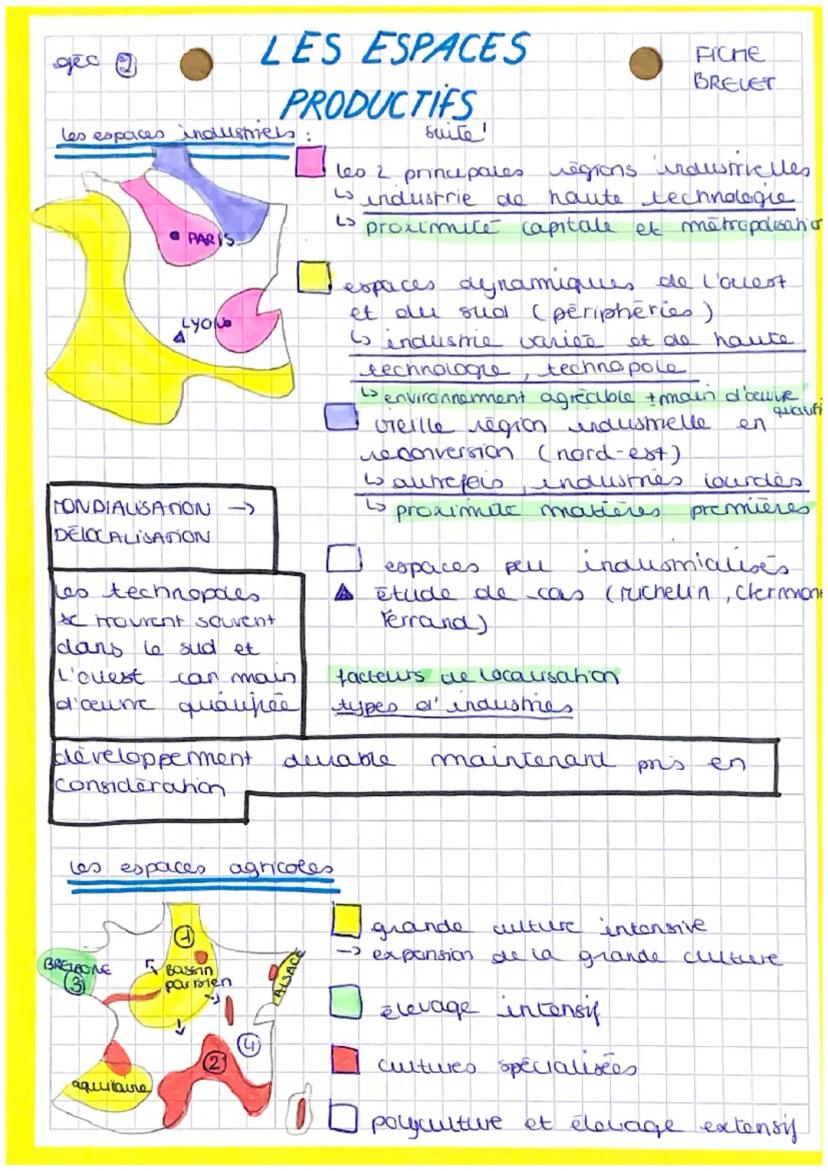 géo 2
LES ESPACES
PRODUCTIFS
FICHE
BREVET
suite!
les espaces industriels :
PARIS
LYON
les 2 principales régions industrielles
↳ industrie de haute technologie
↳ proximité capitale et métropolisatio
espaces dynamiques de l'ouest
et du sud (périphéries)
↳ industrie variée et de haute
technologie, technopole
↳ environnement agréable + main d'œuvre
qualifi
vieille région industrielle en
reconversion (nord-est)
↳ autrefois, industries lourdes
↳ proximité matières premières
espaces peu industrialisés
étude de cas (Michelin, Clermon
Ferrand)
facteurs de localisation
types d'industries
MONDIALISATION →
DÉLOCALISATION
les technopoles
se trouvent souvent
dans le sud et
l'ouest car main
d'œuvre qualifiée
développement durable maintenant pris en
considération
les espaces agricoles
BRETAGNE
3
1
Bassin
parisien
ALSACE
4
2
aquitaine
grande culture intensive
→ expansion de la grande culture
élevage intensif
cultures spécialisées
polyculture et élevage extensif